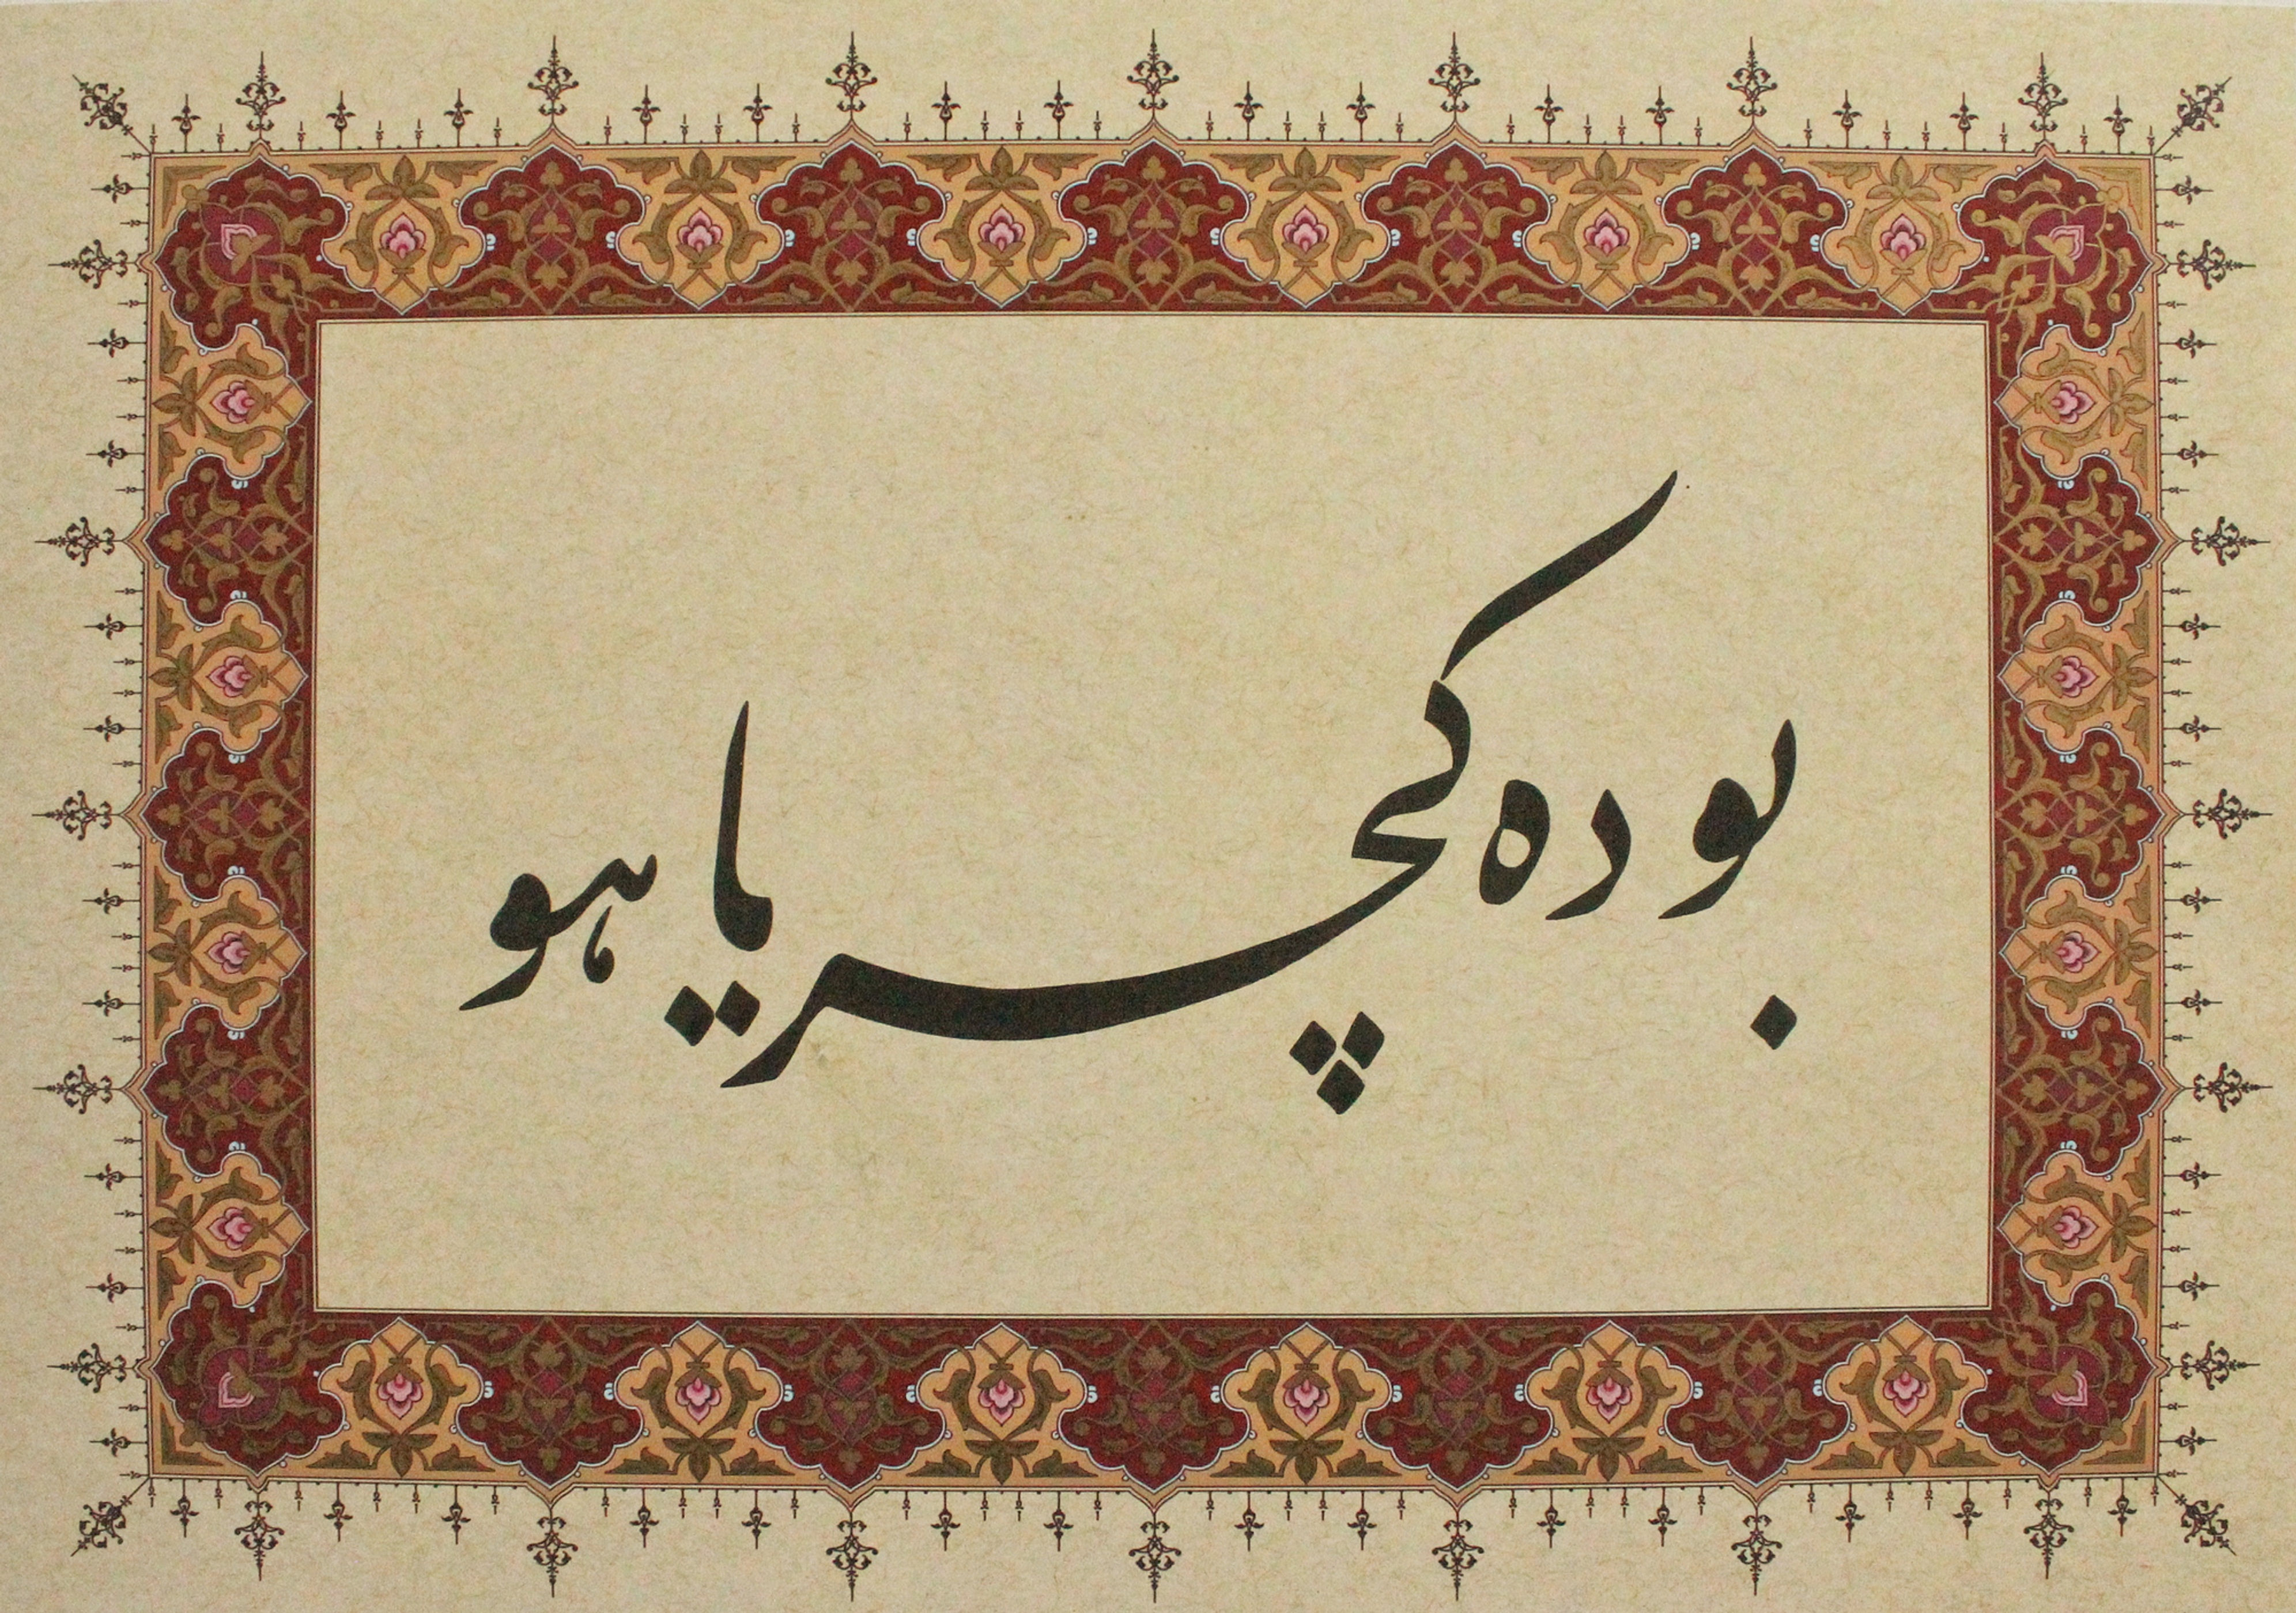 بو ده كچر يا هو